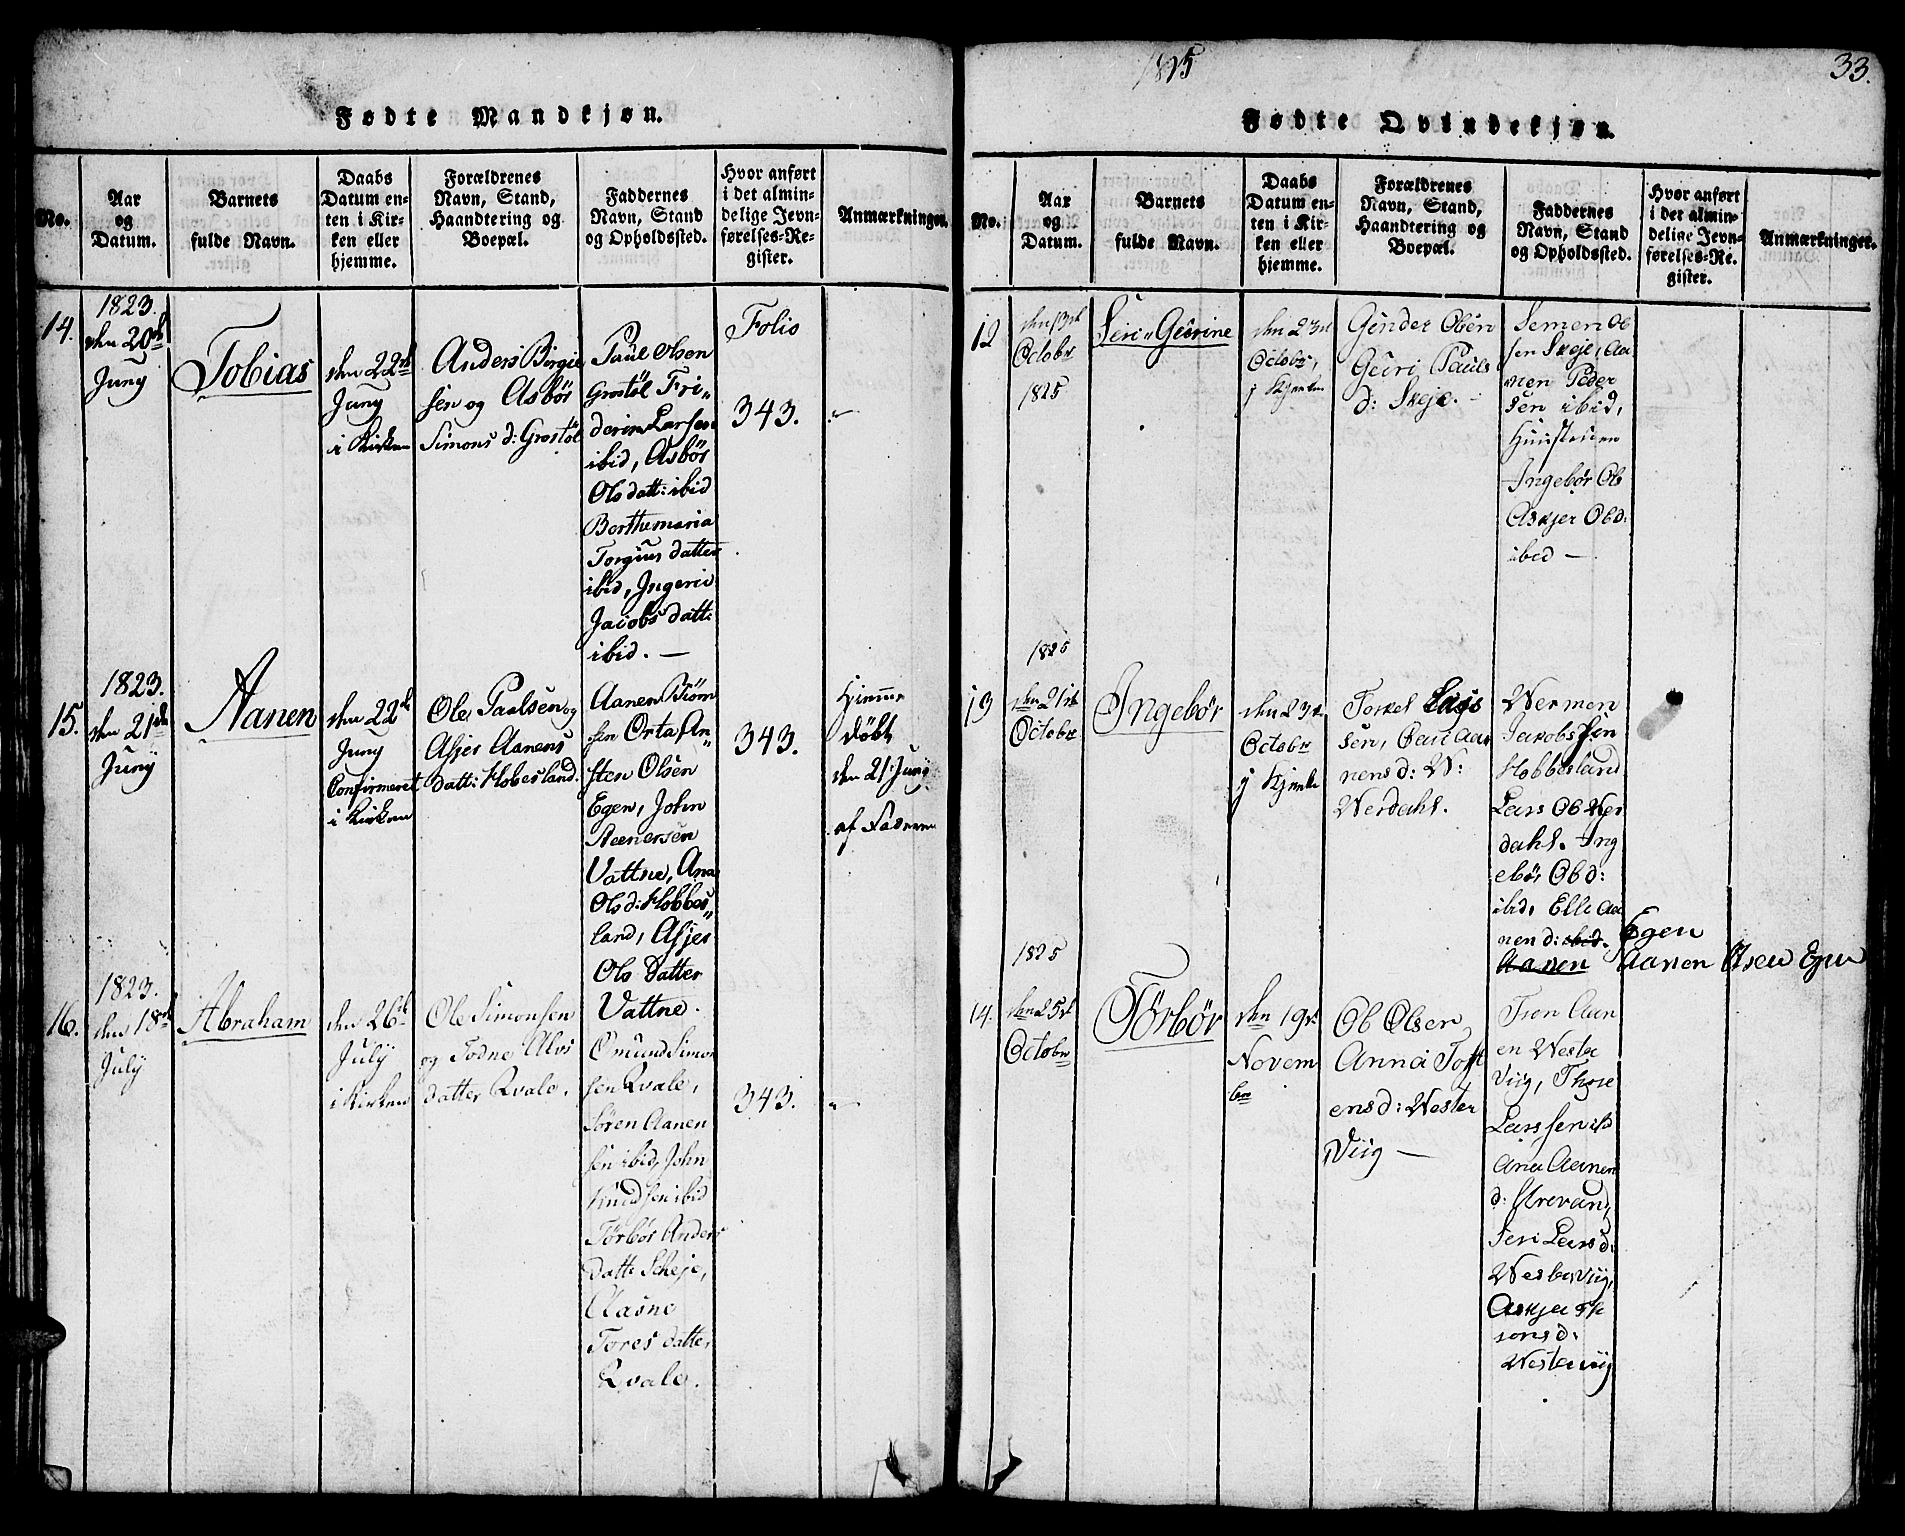 Fødte Mandkjøn.
No.
Aar
og
Datum.
Barnets
fulde Navn.
Daabs
Datum en-
ten i Kir-
ken eller
hjemme.
Forældrenes
Navn, Stand,
Haandtering og
Boepæl.
Faddernes
Navn, Stand
og Opholdssted.
Hvor anført
i det almin-
delige Jevn-
førelses-Re-
gister.
Anmærkninger.
14.
1823.
den 20de
Juny
Tobias
den 22de
Juny
i Kirken
Anders Birgie
sen og Asbör
Simons d: Grostöl
Paul Olsen
Grostöl Fri„
derin Larsen
ibid, Asbör
Ols datt: ibid
Berthemaria
Torgius datter
ibid, Ingerid
Jacobs datt:
ibid. —
Folio
343.
„
15.
1823.
den 21de
Juny
Aanen
den 22de
Juny
Confirmeret
i Kirken
Ole Paalsen og
Asjer Aanens
datt: Hobesland.
Aanen Biörn
sen Orta, An„
sten Olsen
Egen, John
Steenersen
Vattne, Ana
Ols d: Hobbes„
land, Asjer
Ols Datter
Vattne.
343.
Hjemme
döbt
den 21 Juny
af Faderen
16.
1823.
den 18de
July
Abraham
den 26de
July
i Kirken
Ole Simonsen
og Todne Alvs
datter Qvale.
Omund Simon
sen Qvale,
Sören Aanen
sen ibid, John
Knudsen ibid
Törbör Anders
datt: Scheje,
Aasne
Tores datter
Qvale.
343.
„
1825
33.
Fødte Qvindekjøn.
No.
Aar
og
Datum.
Barnets
fulde Navn.
Daabs
Datum en-
ten i Kir-
ken eller
hjemme.
Forældrenes
Navn, Stand,
Haandtering og
Boepæl.
Faddernes
Navn, Stand
og Opholdssted.
Hvor anført
i det almin-
delige Jevn-
førelses-Re-
gister.
Anmærkninger.
12
den 13de
Octobr
1825
Seri Gurine
den 23de
Octobr,
j Kjerken
Gunder Olsen
Guri Pauls
d: Skeje.
Semen Ol
sen Skeje, Aa
nen Peder
sen ibid,
Ingebör Ols
Askjer Olsd:
ibid —
1825
13
den 21de
Octobr
Ingebör
den 23de
Octobr
j Kjerke
Torkel Lars
sen, Aaa
nens d: W:
Werdahl.
Wermon
Jakobs sen
Hobbesland
Lars Ols Wer
dahl. Ing
ebör Olsd:
ibid, Elli Aa
nen d: ibid. Egen
Aanen Aanen Olsen Egen
1825
14.
den 25de
Octobr
Törbör
den 19de
Novem
ber
Ols Olsen
Anna Tost
ens d: Wester
Viig —
Tron Aan
en Wester
Viig, Thore
Lars sen ibd
Ana Aanen
d: Urevand,
Seri Lars d:
Westerviig,
Askjer
sons d:
Westerviig